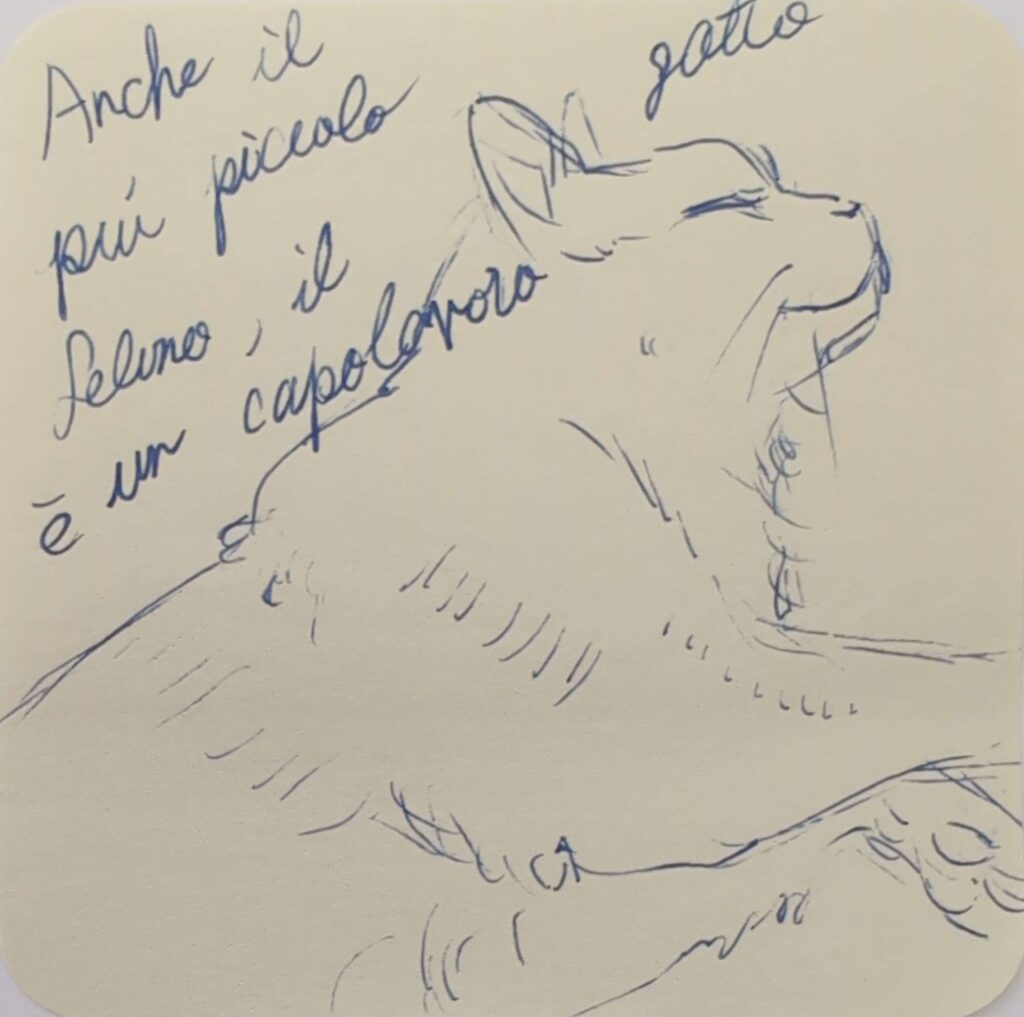 Anche il
più piccolo
felino, il gatto
è un capolavoro